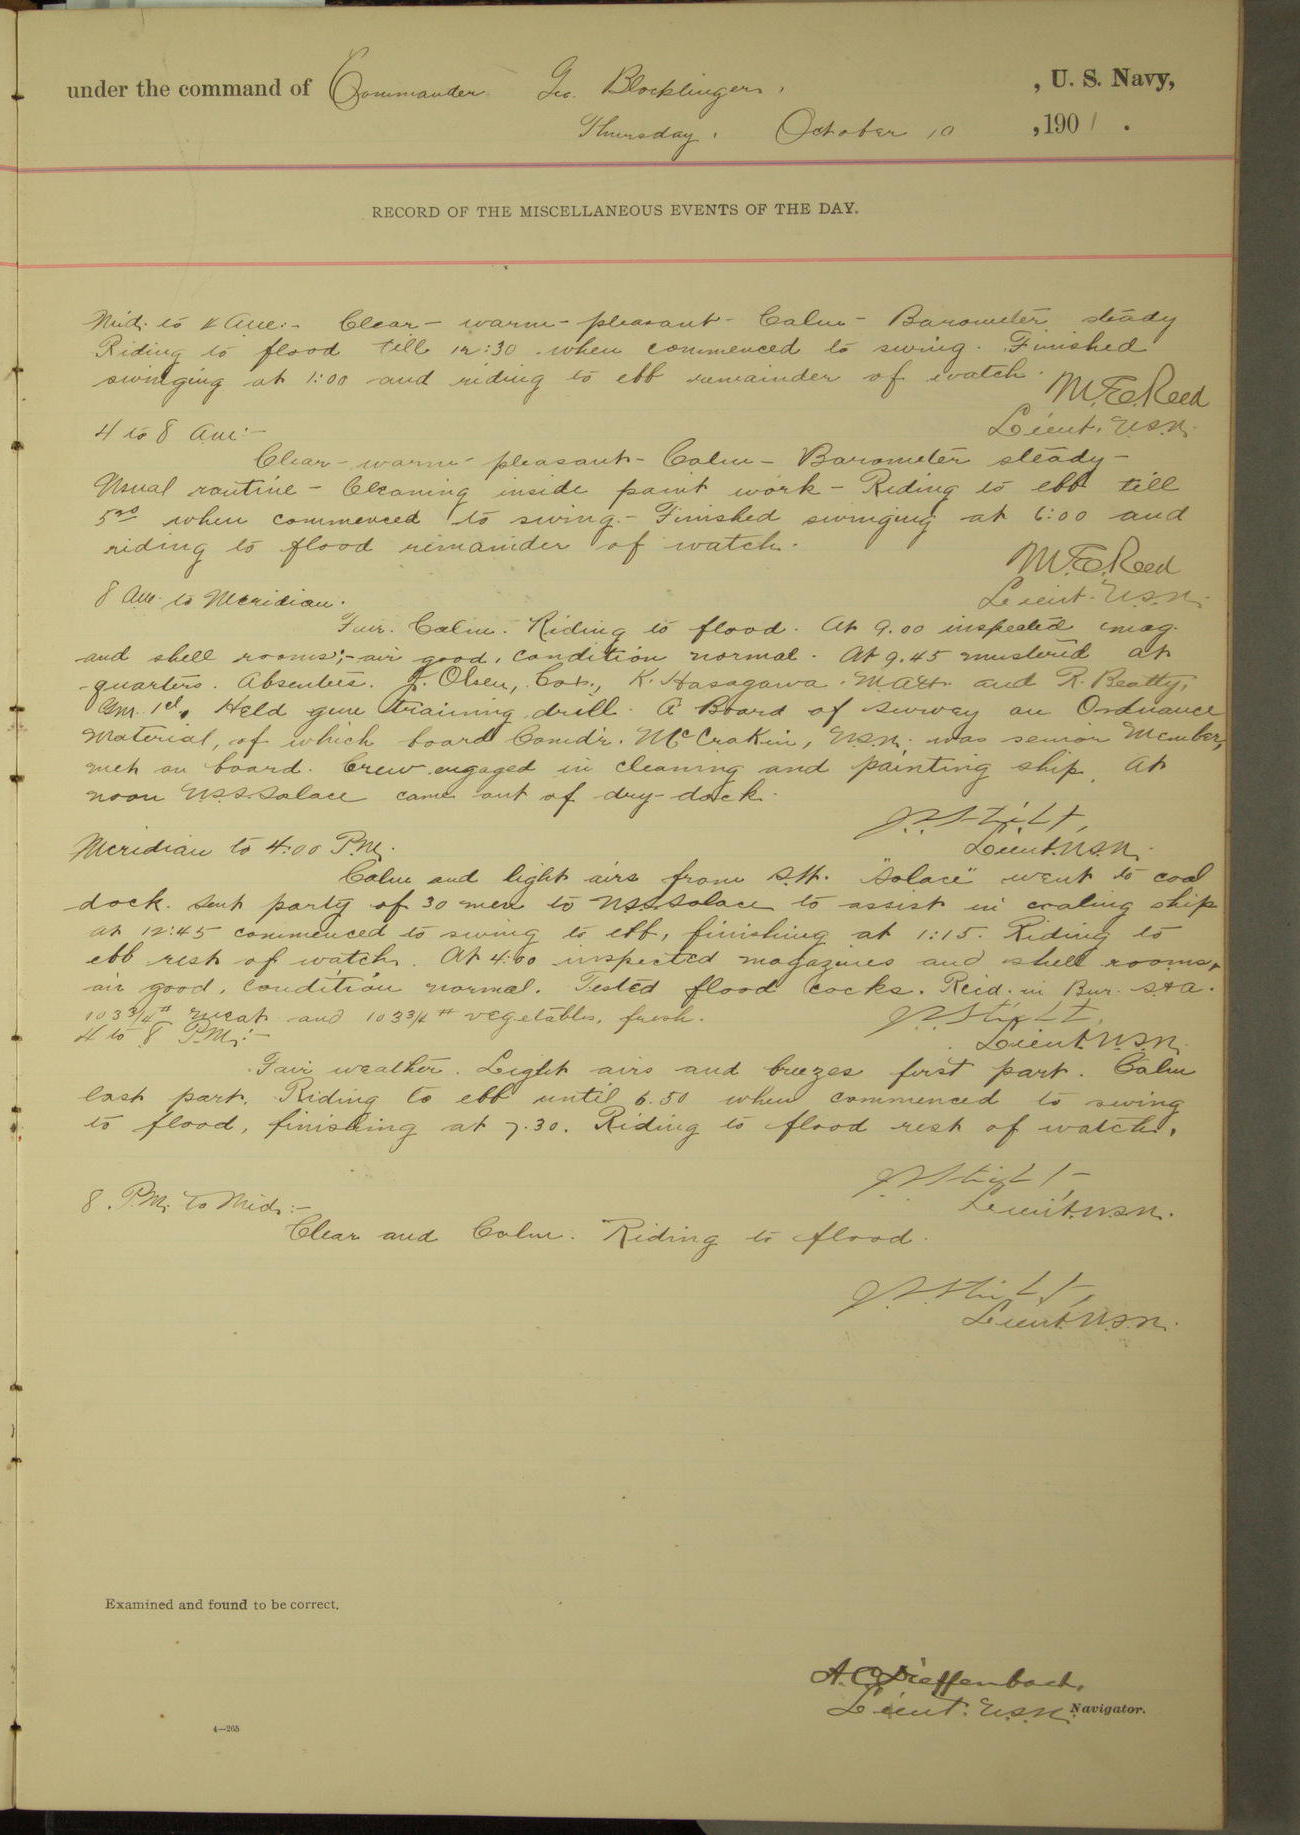 under the command of Commander Geo. Blocklinger, , U. S. Navy,
Thursday, October 10 , 1901 .
RECORD OF THE MISCELLANEOUS EVENTS OF THE DAY.
Mid. to 4 A.M.:- Clear - warm - pleasant - Calm - Barometer steady
Riding to flood till 12:30 when commenced to swing. Finished
swinging at 1:00 and riding to ebb remainder of watch.
M.E. Reed
Lieut. U.S.N.
4 to 8 A.M:-
Clear - warm - pleasant - Calm - Barometer steady -
Usual routine - Cleaning inside paint work - Riding to ebb till
5 30 when commenced to swing. - Finished swinging at 6:00 and
riding to flood remainder of watch.
M.E. Reed
Lieut. U.S.N.
8 A.M. to Meridian.
Fair. Calm. Riding to flood. At 9.00 inspected mag.
and shell rooms; - air good, condition normal. At 9.45 mustered at
quarters. Absentees. J. Olsen, Cox., K. Hasagawa. M.Att. and R. Beatty,
G.M. 1cl. Held gun training drill. A Board of survey on Ordnance
Material, of which board Comdr. McCrakin, U.S.N. was senior Member,
met on board. Crew engaged in cleaning and painting ship. At
noon U.S.S. Solace came out of dry-dock.
Lieut. U.S.N.
Meridian to 4:00 P.M.
Calm and light airs from S.W. "Solace" went to coal
dock. Sent party of 30 men to U.S.S. Solace to assist in coaling ship
at 12:45 commenced to swing to ebb, finishing at 1:15. Riding to
ebb rest of watch. At 4:00 inspected magazines and shell rooms,
air good, condition normal. Tested flood cocks. Recd. in Bur. S & A.
103 3/4 # meat and 103 3/4 # vegetables, fresh.
Lieut. U.S.N.
4 to 8 P.M.:-
Fair weather. Light airs and breezes first part. Calm
last part. Riding to ebb until 6.50 when commenced to swing
to flood, finishing at 7.30. Riding to flood rest of watch.
Lieut. U.S.N.
8 P.M. to Mid.:-
Clear and Calm. Riding to flood.
Lieut. U.S.N.
Examined and found to be correct.
A. C. Dieffenbach,
Lieut. U.S.N. Navigator.
4—265